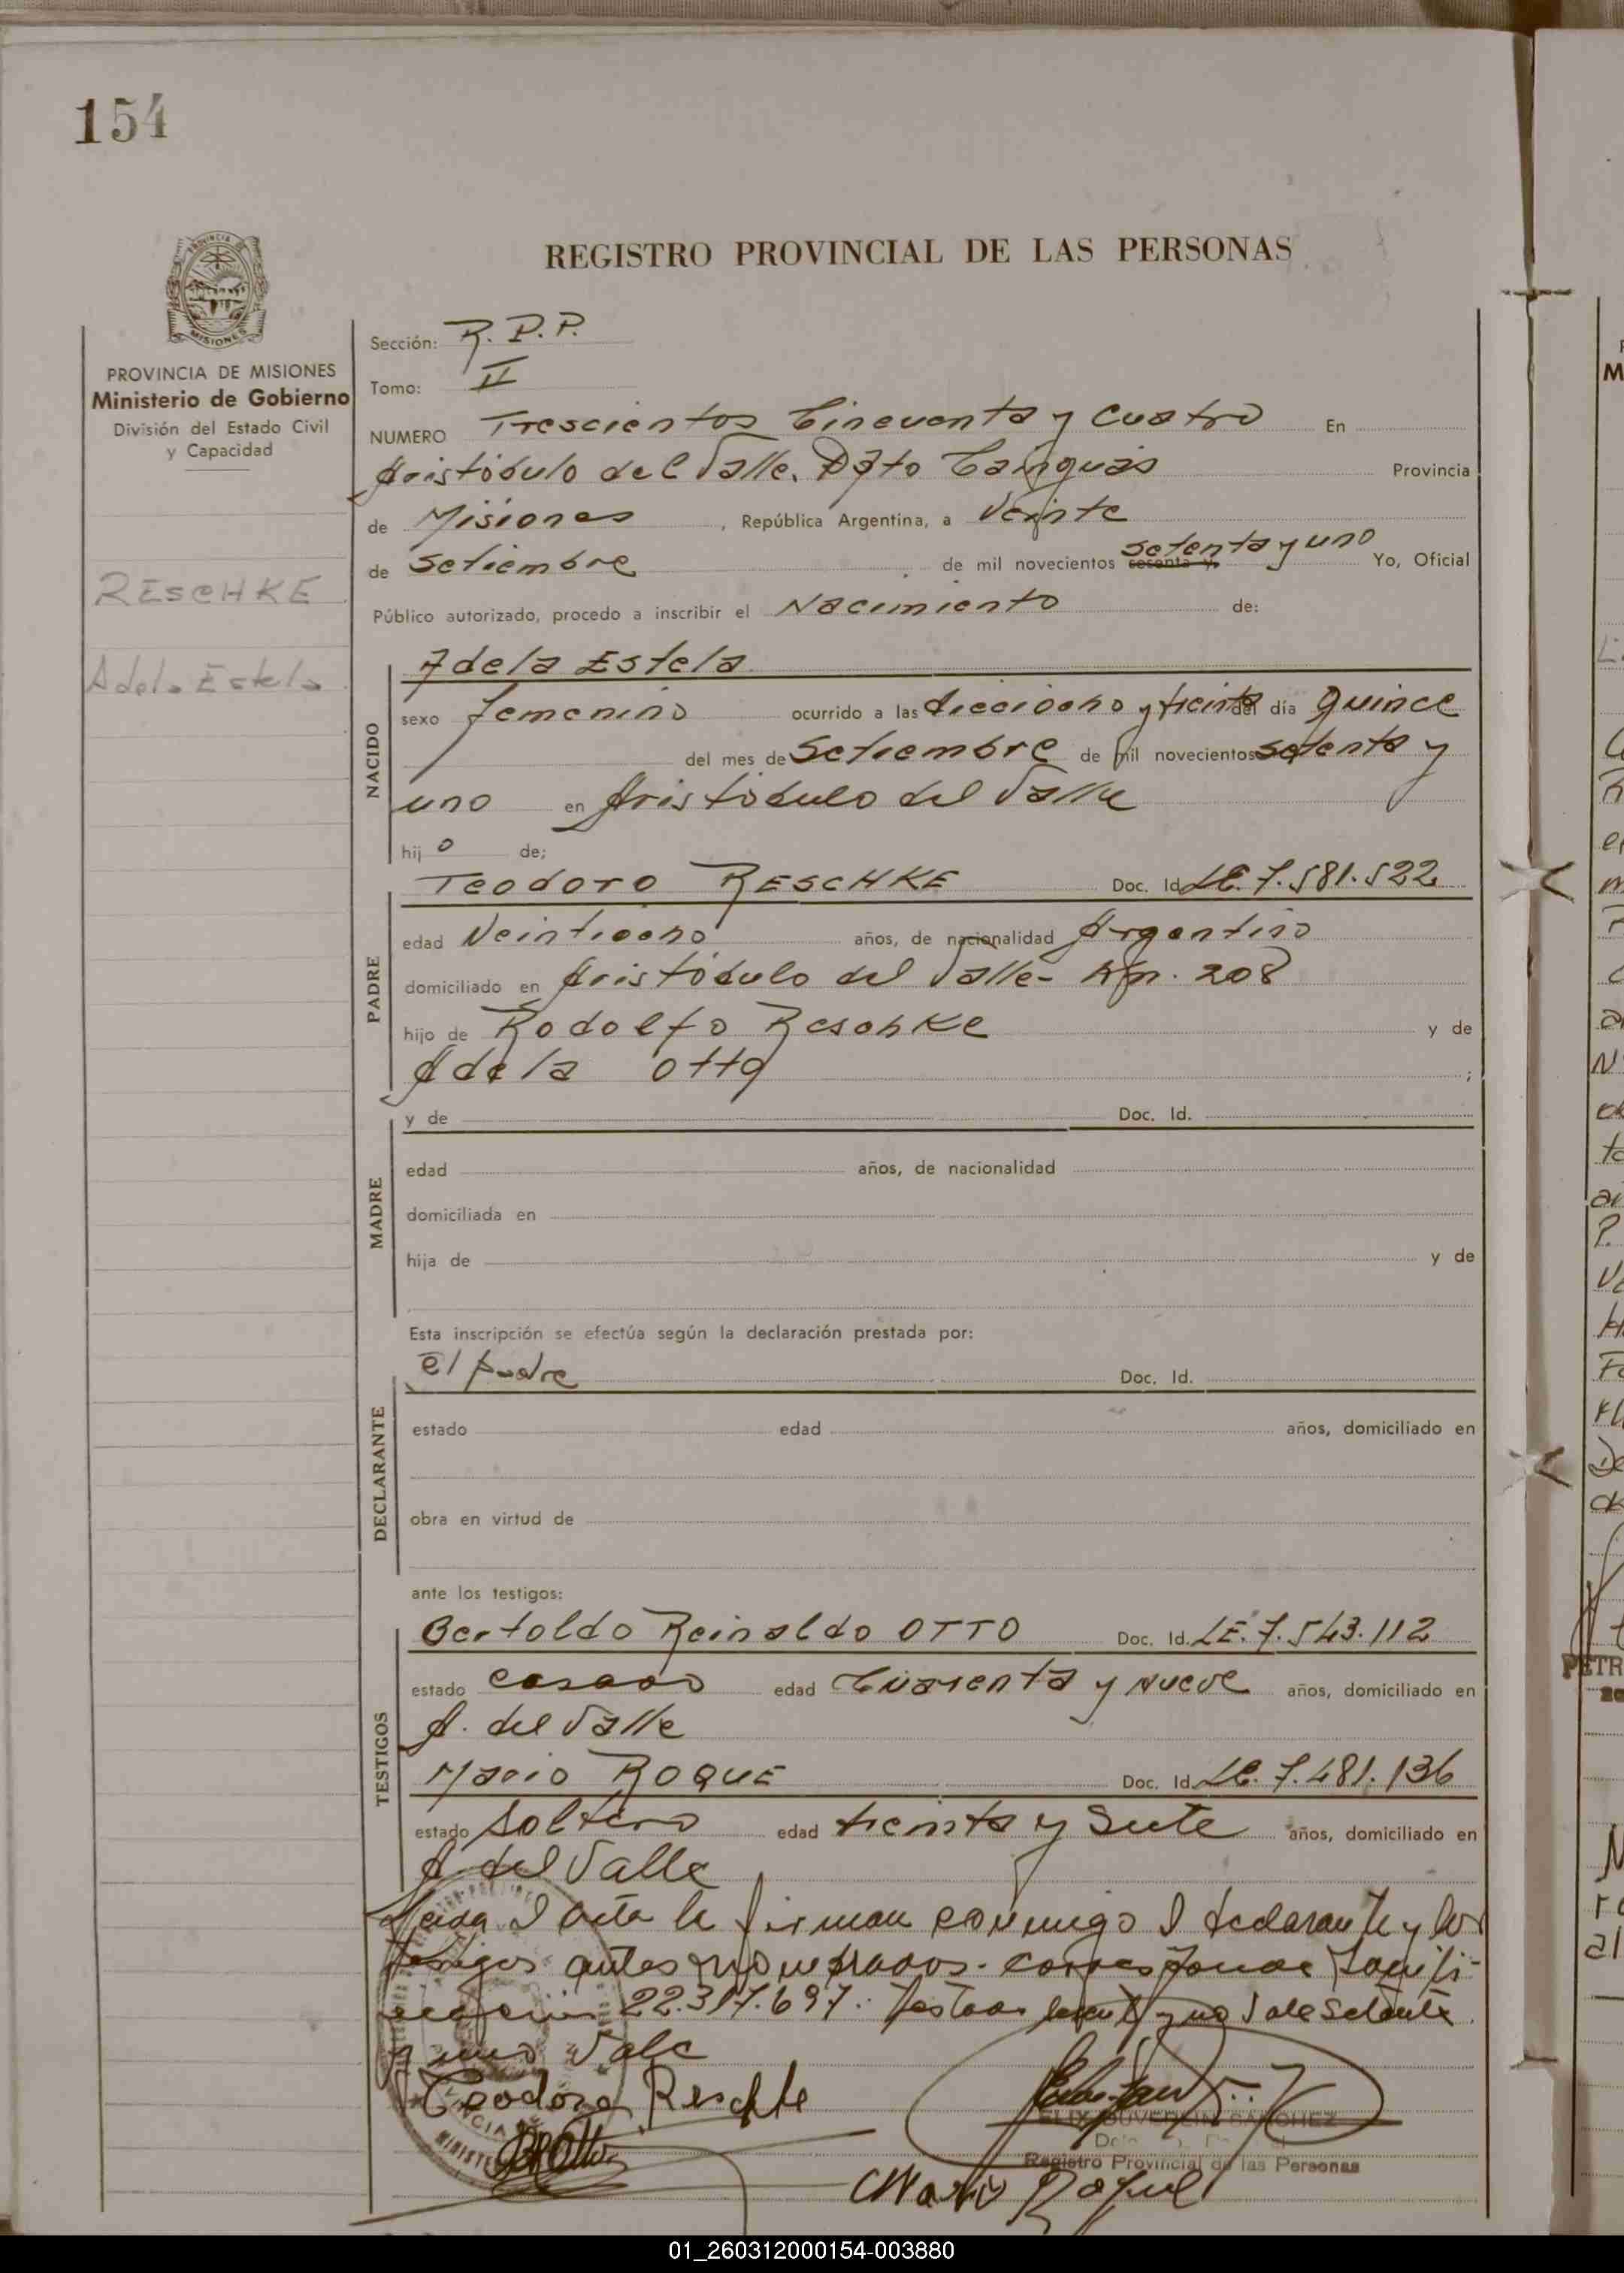 154
REGISTRO PROVINCIAL DE LAS PERSONAS
PROVINCIA DE MISIONES
Ministerio de Gobierno
División del Estado Civil
y Capacidad
RESCHKE
Adela Estela
Sección: R. P. P.
Tomo: II
NUMERO Trescientos Cincuenta y Cuatro En
Aristóbulo del Valle. Dpto Cainguás Provincia
de Misiones , República Argentina, a Veinte
de Setiembre de mil novecientos sesenta y setenta y uno Yo, Oficial
Público autorizado, procedo a inscribir el Nacimiento de:
NACIDO
Adela Estela
sexo femenino ocurrido a las dieciocho y treinta del día quince
del mes de Setiembre de mil novecientos setenta y
uno en Aristóbulo del Valle
hij o de;
PADRE
Teodoro RESCHKE Doc. Id. LE. 7.581.522
edad Veintiocho años, de nacionalidad Argentino
domiciliado en Aristóbulo del Valle- Km. 208
hijo de Rodolfo Reschke y de
Adela Otto ;
MADRE
y de Doc. Id.
edad años, de nacionalidad
domiciliada en
hija de y de
Esta inscripción se efectúa según la declaración prestada por:
DECLARANTE
El padre Doc. Id.
estado edad años, domiciliado en
obra en virtud de
ante los testigos:
TESTIGOS
Bertoldo Reinaldo OTTO Doc. Id. LE. 7.543.112
estado casado edad Cuarenta y nueve años, domiciliado en
A. del Valle
Mario ROQUE Doc. Id. LE. 7.481.136
estado soltero edad treinta y siete años, domiciliado en
A. del Valle
Leida el acta la firman conmigo el declarante y los
testigos antes nombrados. corresponde
22.317.697. Testado y no Vale setenta
y uno Vale
Teodoro Reschke
B R Otto
FELIX DUVERLIN SANCHEZ
Registro Provincial de las Personas
Mario Roque
01_260312000154-003880